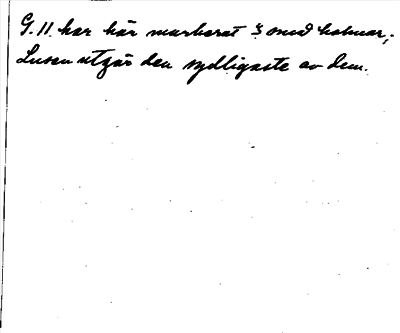 G. 11 har här markerat 3 små holmar;
Lusen utgör den sydligaste av dem.